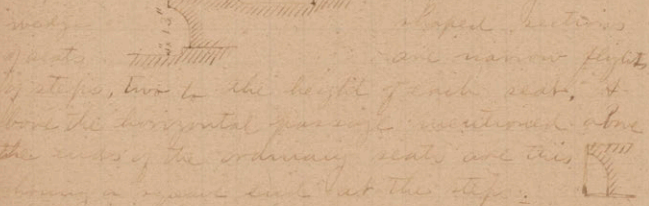 wedge shaped sections
of seats are narrow flights
of steps, two to the height of each seat. A-
bove the horizontal passage mentioned above
the ends of the ordinary seats are thus
having a square end at the steps.